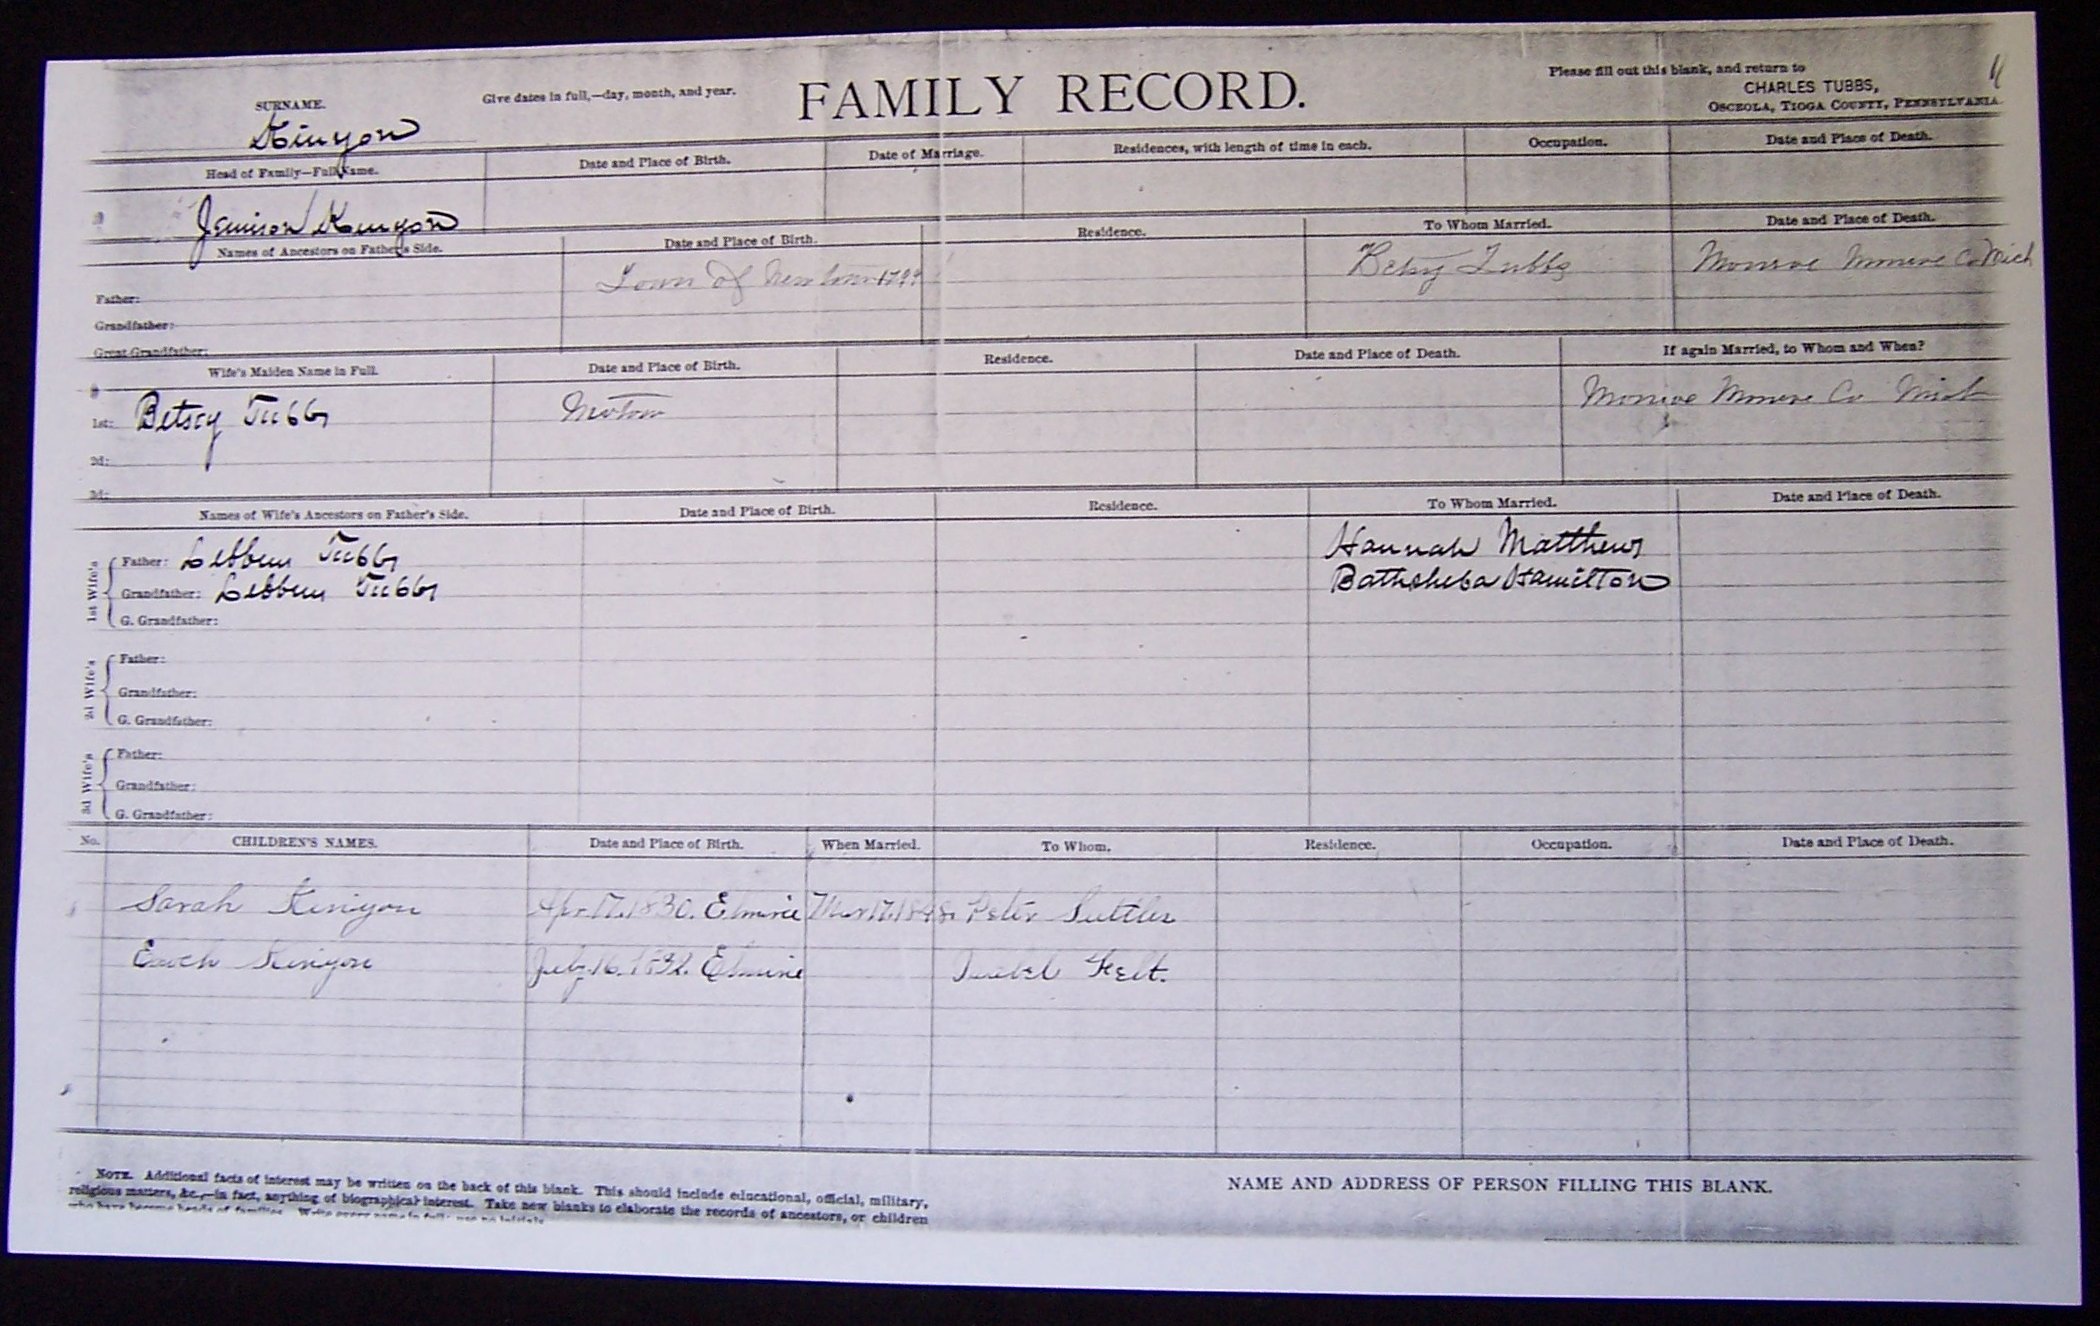 FAMILY RECORD.
SURNAME.
Give dates in full,—day, month, and year.
Please fill out this blank, and return to
CHARLES TUBBS,
OSCEOLA, TIOGA COUNTY, PENNSYLVANIA.
Kinyon
Head of Family—Full Name.
Date and Place of Birth.
Date of Marriage.
Residences, with length of time in each.
Occupation.
Date and Place of Death.
Jemison Kinyon
Names of Ancestors on Father's Side.
Date and Place of Birth.
Residence.
To Whom Married.
Date and Place of Death.
Town of Newtown 1799
Betsy Tubbs
Monroe Monroe Co Mich
Father:
Grandfather:
Great Grandfather:
Wife's Maiden Name in Full.
Date and Place of Birth.
Residence.
Date and Place of Death.
If again Married, to Whom and When?
1st: Betscy Tubbs
Monroe Monroe Co Mich
2d:
3d:
Names of Wife's Ancestors on Father's Side.
Date and Place of Birth.
Residence.
To Whom Married.
Date and Place of Death.
1st Wife's
Father: Lebbeus Tubbs
Hannah Matthews
Grandfather: Lebbeus Tubbs
Bathsheba Hamilton
G. Grandfather:
2d Wife's
Father:
Grandfather:
G. Grandfather:
3d Wife's
Father:
Grandfather:
G. Grandfather:
No.
CHILDREN'S NAMES.
Date and Place of Birth.
When Married.
To Whom.
Residence.
Occupation.
Date and Place of Death.
Sarah Kinyon
Apr. 17. 1830. Elmira
Mar 17. 1848.
Peter Suttler
Kinyon
July 16. 1832. Elmira
NOTE. Additional facts of interest may be written on the back of this blank. This should include educational, official, military,
religious matters, &c.,—in fact, anything of biographical interest. Take new blanks to elaborate the records of ancestors, or children
who have become heads of families. Write every name in full; use no initials.
NAME AND ADDRESS OF PERSON FILLING THIS BLANK.